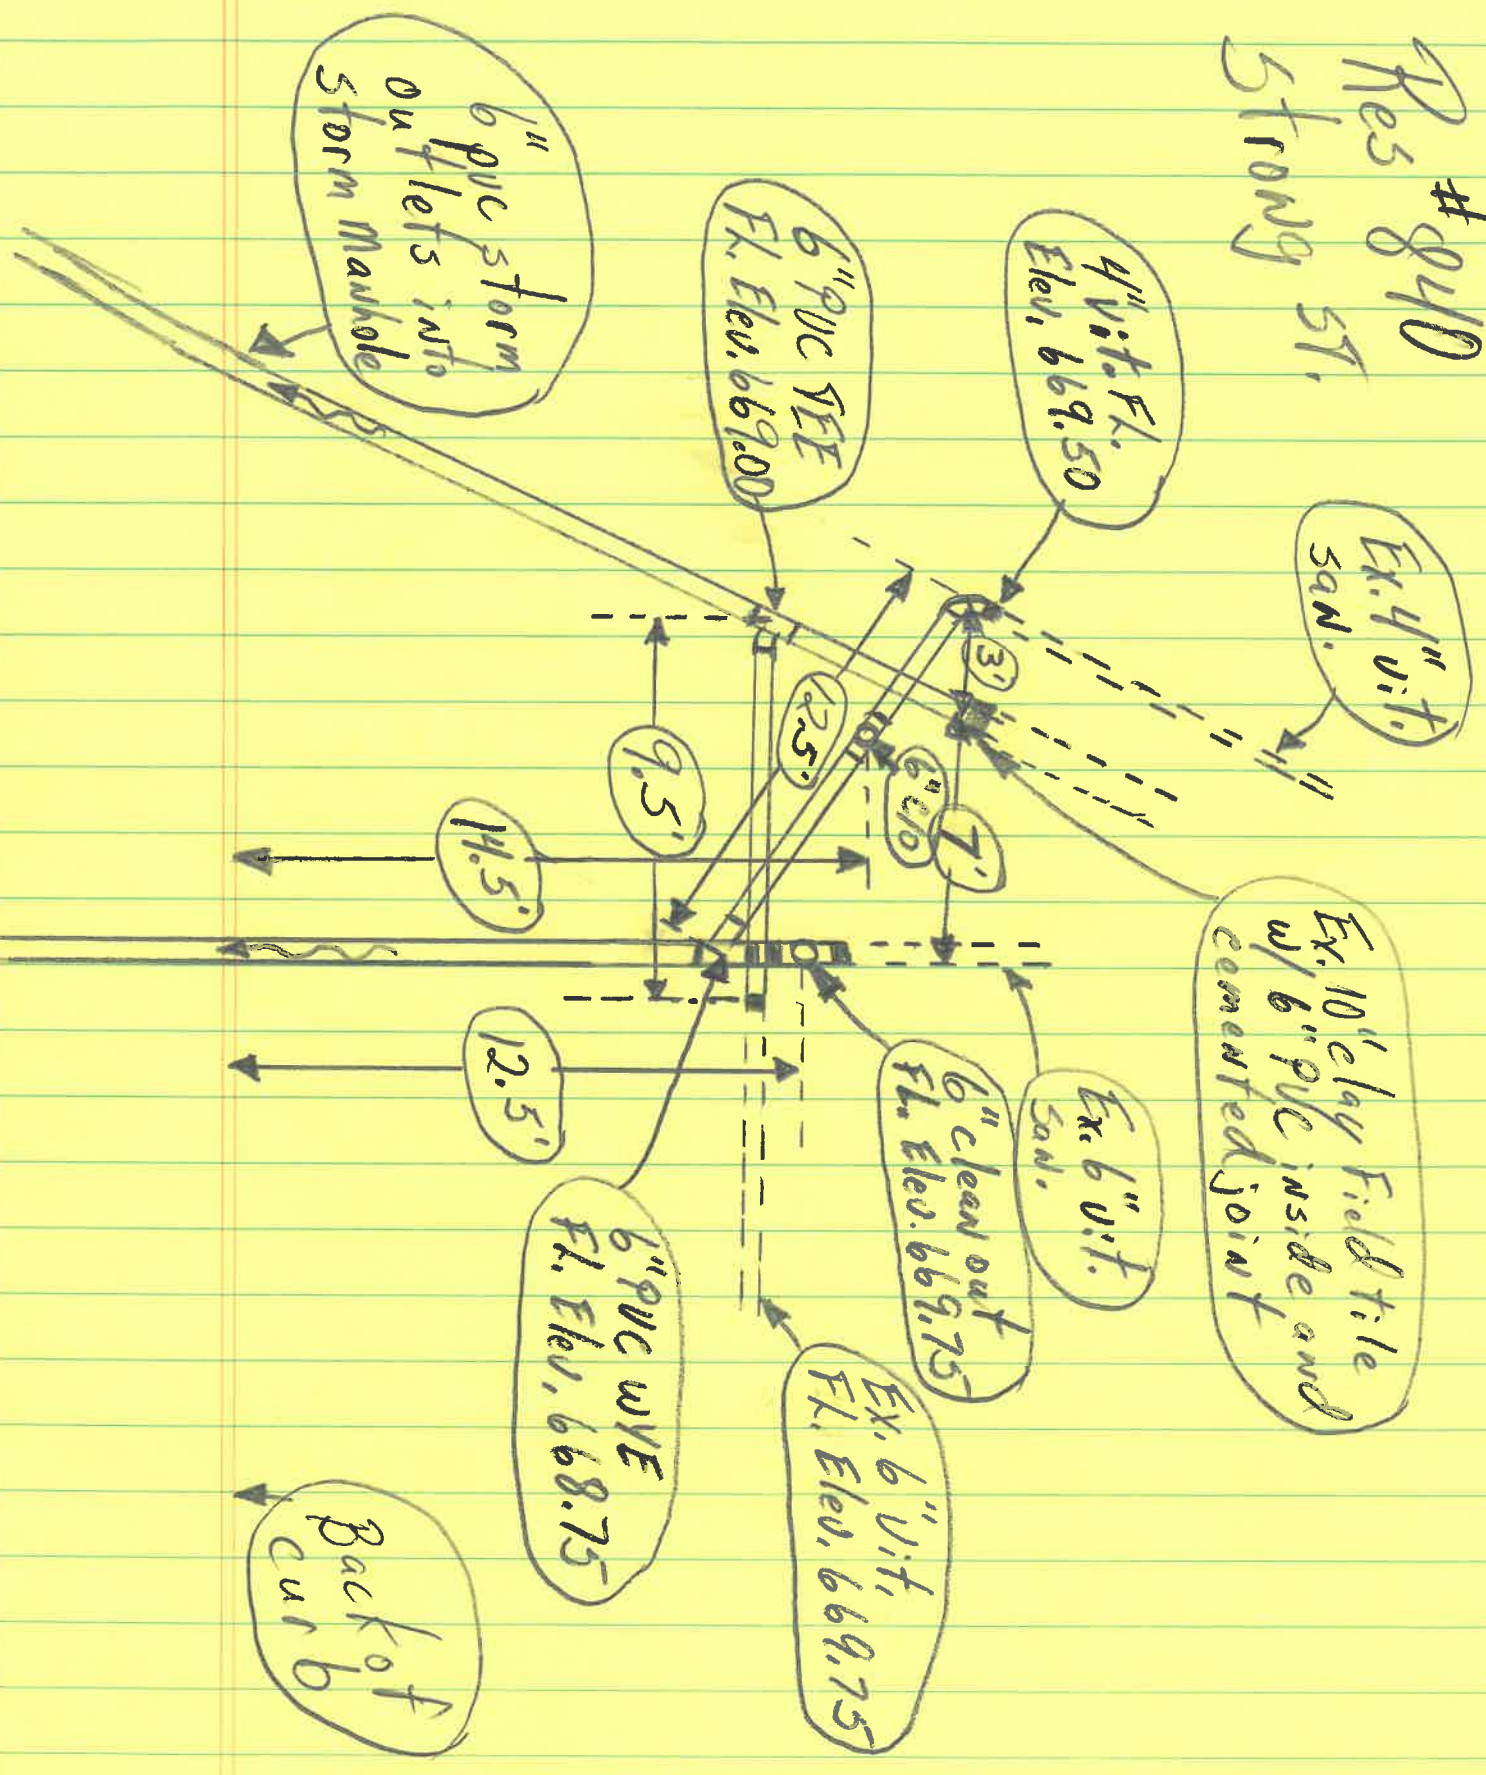 Res #840
Strong ST.
Ex. 4" vit.
SAN.
4" Vit. FL.
Elev. 669.50
6" PVC TEE
FL. Elev. 669.00
6" pvc storm
outlets into
storm manhole
Ex. 10" clay Field tile
w/ 6" PVC inside and
cemented joint
Ex. 6" Vit.
SAN.
6" clean out
FL. Elev. 669.75
Ex. 6" Vit.
FL. Elev. 669.75
6" PVC WYE
FL. Elev. 668.75
Back of
curb
3'
7'
6" c/o
12.5'
9.5'
14.5'
12.5'